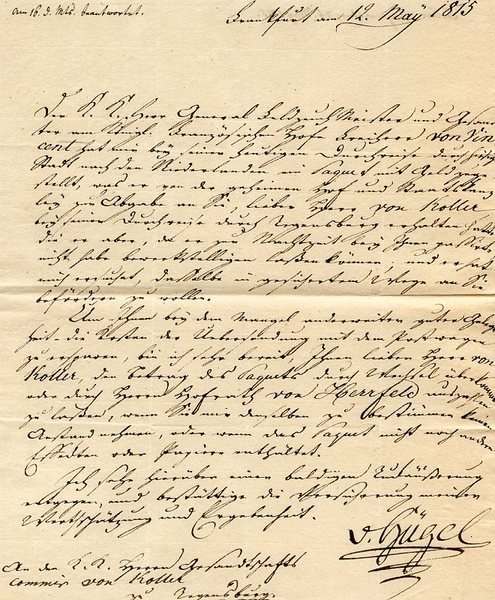 am 16. d. Mts. beantwortet.
Frankfurt am 12. May 1815
Der K. K. Herr General Feldzeugmeister und Gesand-
ter am Königl. Französischen Hofe Freiherr von Vin
cent hat mir bey seiner heutigen Durchreise durch hiesige
Stadt nach den Niederlanden ein Paquet mit Geld zuge
stellt, was er von der geheimen Hof und Staats Canz
ley zu Abgabe an Sie, lieber Herr von Koller
bey seiner Durchreise durch Regensburg erhalten hatte
die er aber, da er zu Nachtzeit bey Ihnen passirte
nicht habe bewerkstelligen lassen können, und er hat
mich ersuchet, dasselbe in gesichertem Wege an Sie
befördern zu wollen.
Um Ihnen bey dem Mangel anderweiter guter Gelegen
heit die Kosten der Uebersendung mit dem Postwagen
zu ersparen, bin ich sehr bereit, Ihnen lieber Herr von
Koller, den Betrag des Paquets durch Wechsel
oder durch Herrn Hofrath von Herrfeld auszahlen
zu lassen, wenn Sie mir denselben zu bestimmen keinen
Anstand nehmen, oder wenn das Paquet nicht noch andere
Effekten oder Papiere enthaltet.
Ich sehe hierüber einer baldigen Rückäußerung
entgegen, und bestättige die Versicherung meiner
Werthschätzung und Ergebenheit.
v. Hügel
An den K. K. Herrn Gesandtschafts
commis von Koller
zu Regensburg.